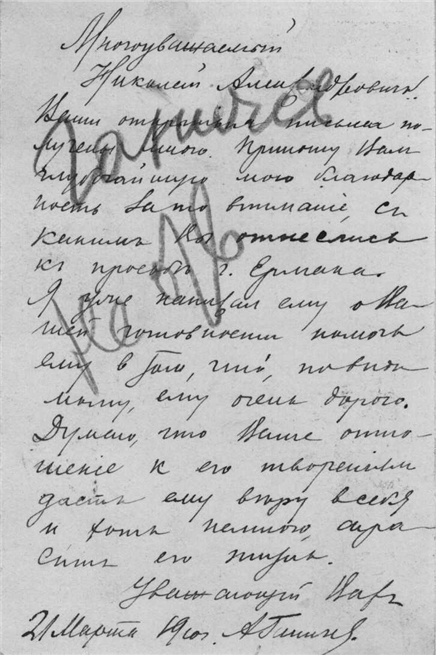 Многоуважаемый
Николай Александровичъ!
Ваши открытыя письма по-
лучены мною. Приношу Вамъ
глубочайшую мою благодар
ность за то вниманіе, съ
какимъ Вы отнеслись
къ просьбѣ г. Ермана.
Я уже написал ему о Ва
шей готовности помочь
ему в том, что, по види
мому, ему очень дорого.
Думаю, что Ваше отно-
шеніе к его твореніям
дастъ ему вѣру в себя
и хоть немного скра
ситъ его жизнь.
Уважающій Васъ
21 Марта 1910г.